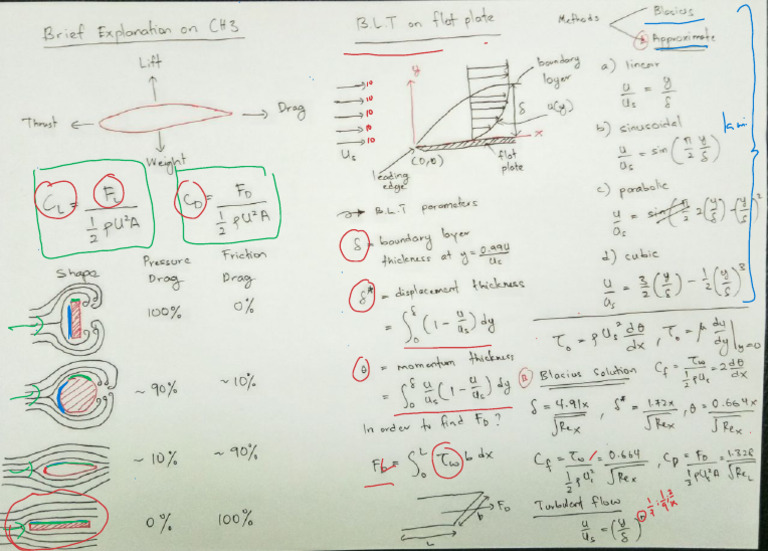 Brief Explanation on CH3
Lift
Thrust
Drag
Weight
C_L = F_L / (1/2 ρU²A)
C_D = F_D / (1/2 ρU²A)
Shape
Pressure Drag
Friction Drag
100% 0%
~90% ~10%
~10% ~90%
0% 100%
B.L.T on flat plate
10
10
10
10
10
U_s
y
boundary layer
δ
u(y)
x
(0,0)
leading edge
flat plate
B.L.T parameters
δ = boundary layer
thickness at y = 0.99u / u_s
δ* = displacement thickness
= ∫₀^δ (1 - u/u_s) dy
θ = momentum thickness
= ∫₀^δ u/u_s (1 - u/u_s) dy
In order to find F_D?
F_D = ∫₀^L τ_w b dx
F_D
b
L
Methods
Blasius
② Approximate
a) linear
u/u_s = y/δ
b) sinusoidal
u/u_s = sin (π/2 y/δ)
c) parabolic
u/u_s = 2(y/δ) - (y/δ)²
d) cubic
u/u_s = 3/2 (y/δ) - 1/2 (y/δ)³
τ₀ = ρ U_s² dθ/dx , τ₀ = μ du/dy |y=0
① Blacius solution C_f = τ_w / (1/2 ρU_s²) = 2 dθ/dx
δ = 4.91x / √Re_x , δ* = 1.72x / √Re_x , θ = 0.664x / √Re_x
C_f = τ_w / (1/2 ρU_s²) = 0.664 / √Re_x , C_D = F_D / (1/2 ρU_s²A) = 1.328 / √Re_L
Turbulent flow
u/u_s = (y/δ)